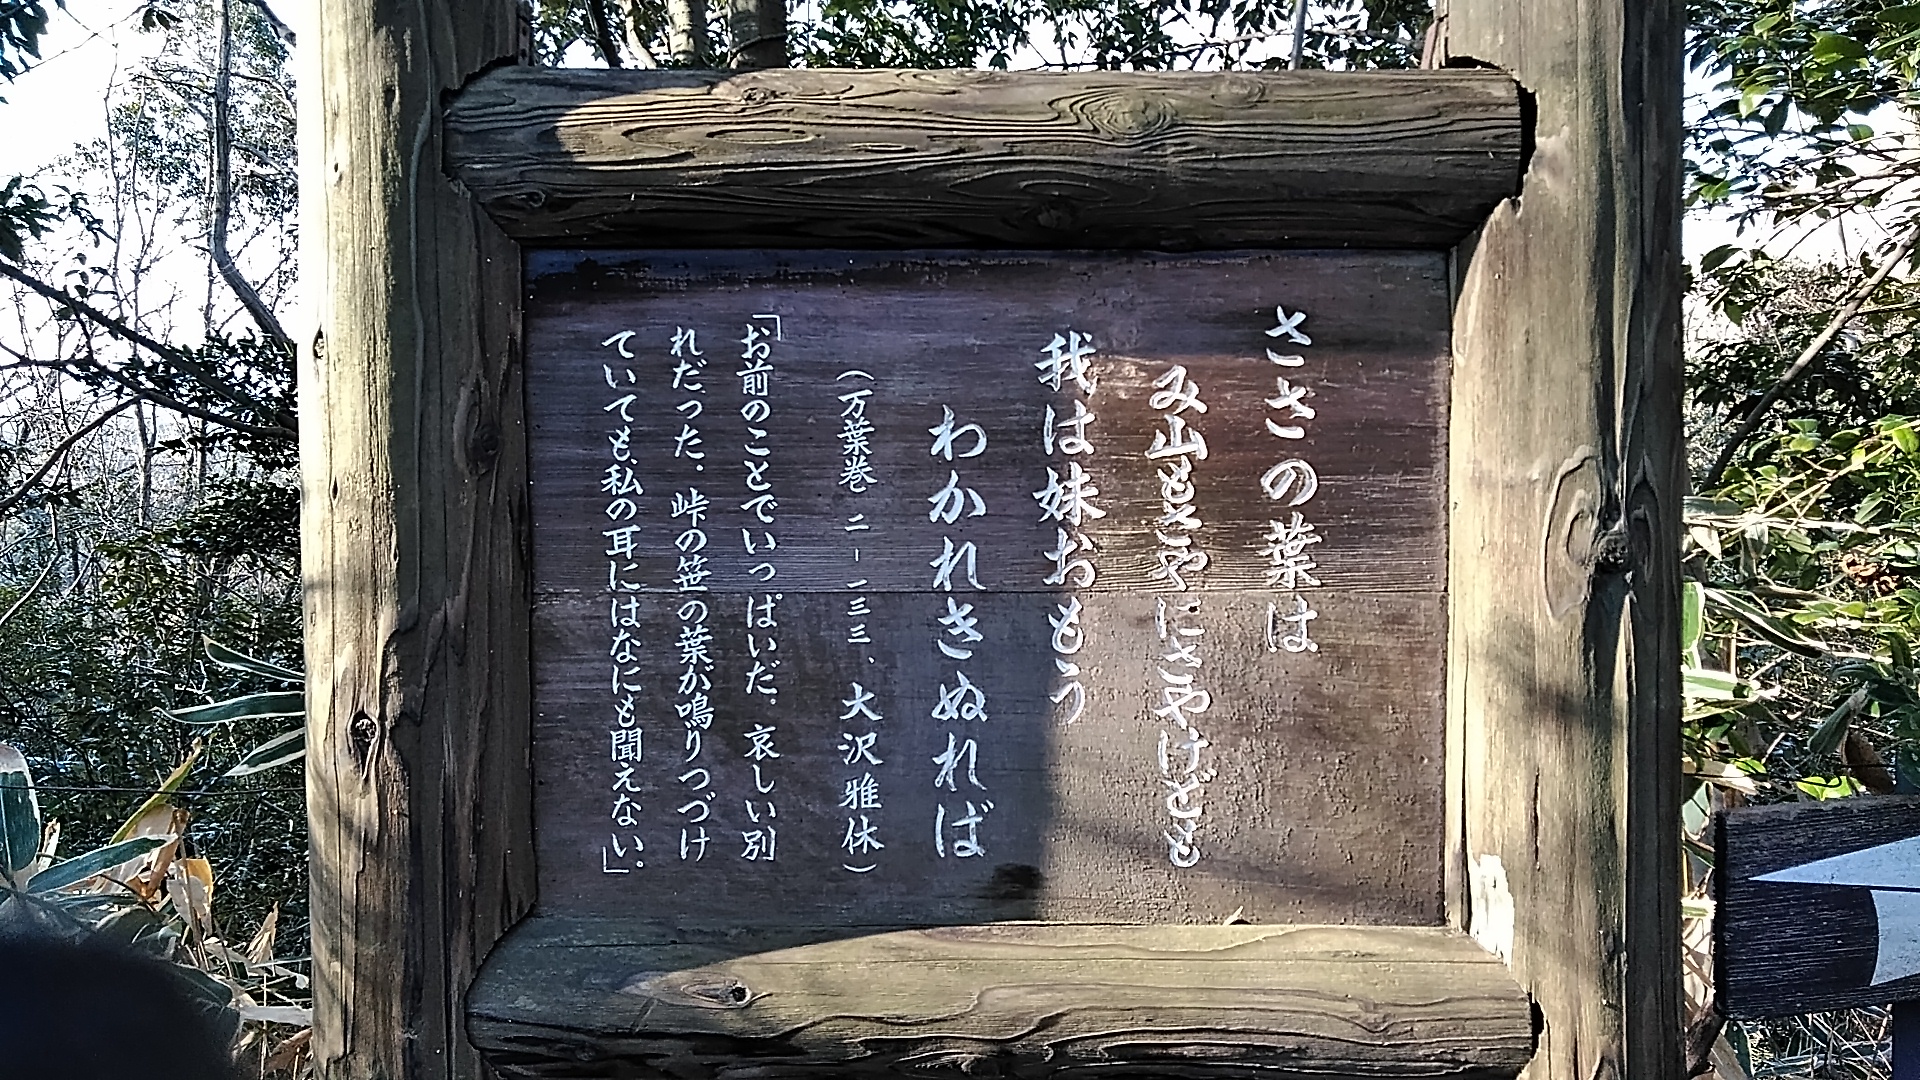 ささの葉は
み山もさやにさやけども
我は妹おもう
わかれきぬれば
（万葉巻 二－一三三、大沢雅休）
「お前のことでいっぱいだ。哀しい別
れだった。峠の笹の葉が鳴りつづけ
ていても、私の耳にはなにも聞えない。」